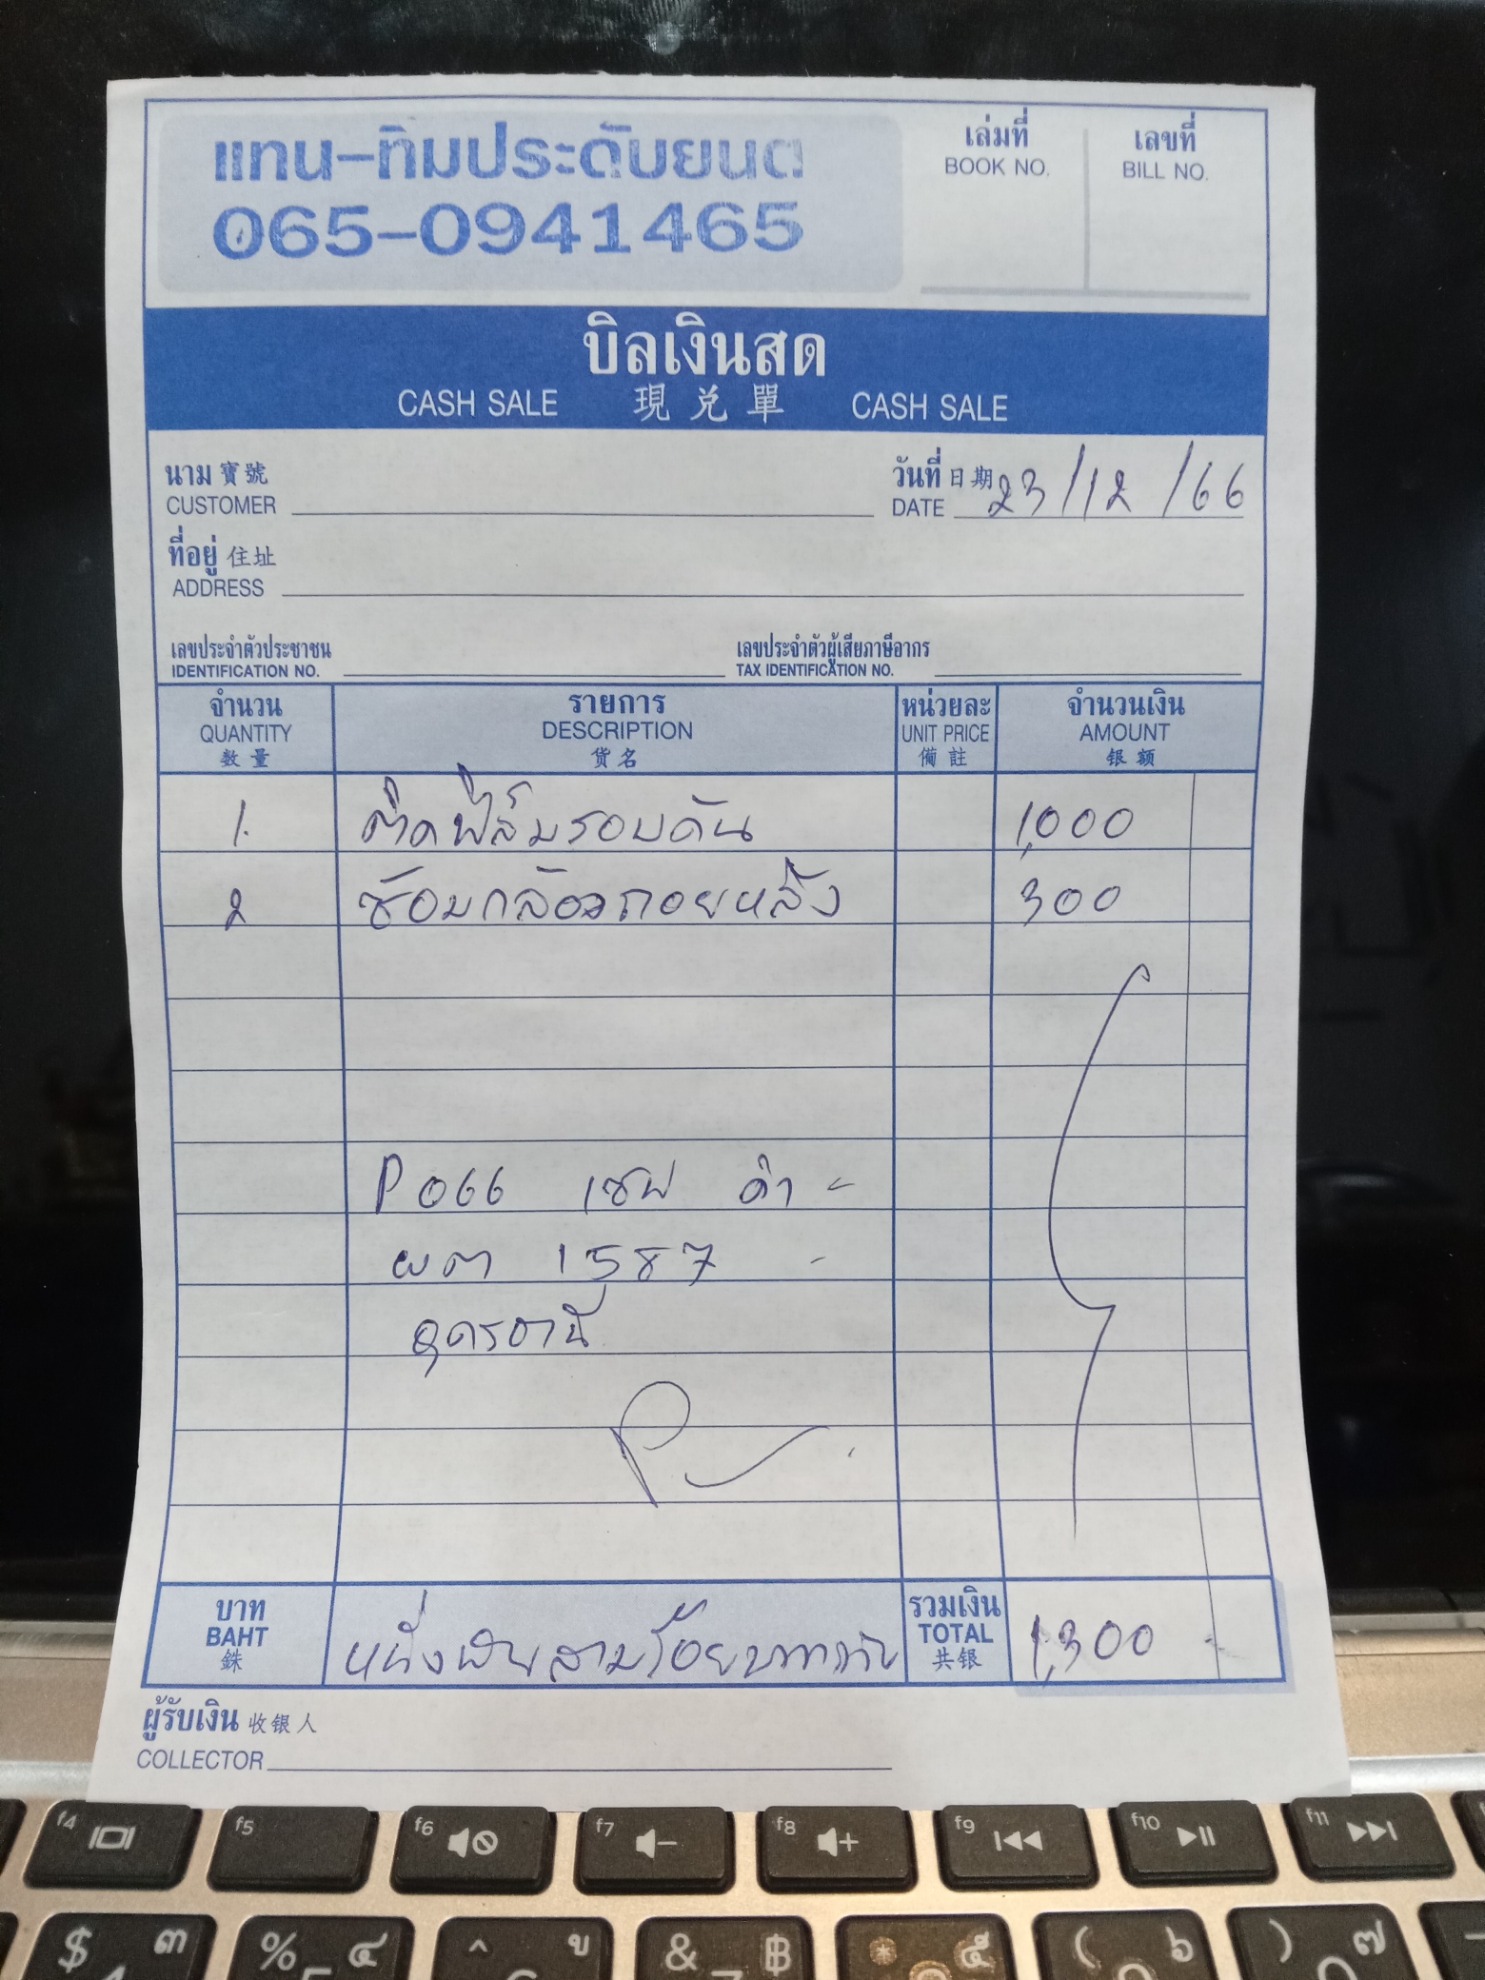 แทน-ทิมประดับยนต์
065-0941465
เล่มที่
BOOK NO.
เลขที่
BILL NO.
บิลเงินสด
CASH SALE 現兑單 CASH SALE
นาม 寶號
CUSTOMER
วันที่ 日期 23/12/66
DATE
ที่อยู่ 住址
ADDRESS
เลขประจำตัวประชาชน
IDENTIFICATION NO.
เลขประจำตัวผู้เสียภาษีอากร
TAX IDENTIFICATION NO.
จำนวน รายการ หน่วยละ จำนวนเงิน
QUANTITY DESCRIPTION UNIT PRICE AMOUNT
数量 貨名 備註 银额
1. ติดฟิล์มรอบคัน 1,000
2 ซ้อมกล้องถอยหลัง 300
P066 เชฟ ดำ -
ผต 1587 -
อุดรธานี
บาท
BAHT
銖
หนึ่งพันสามร้อยบาทถ้วน
รวมเงิน
TOTAL
共银
1,300 -
ผู้รับเงิน 收银人
COLLECTOR
f4 f5 f6 f7 f8 f9 f10 f11
$ ๓ % ๔ ^ ข & ฿ * ๕ ( ๖ ) ๗